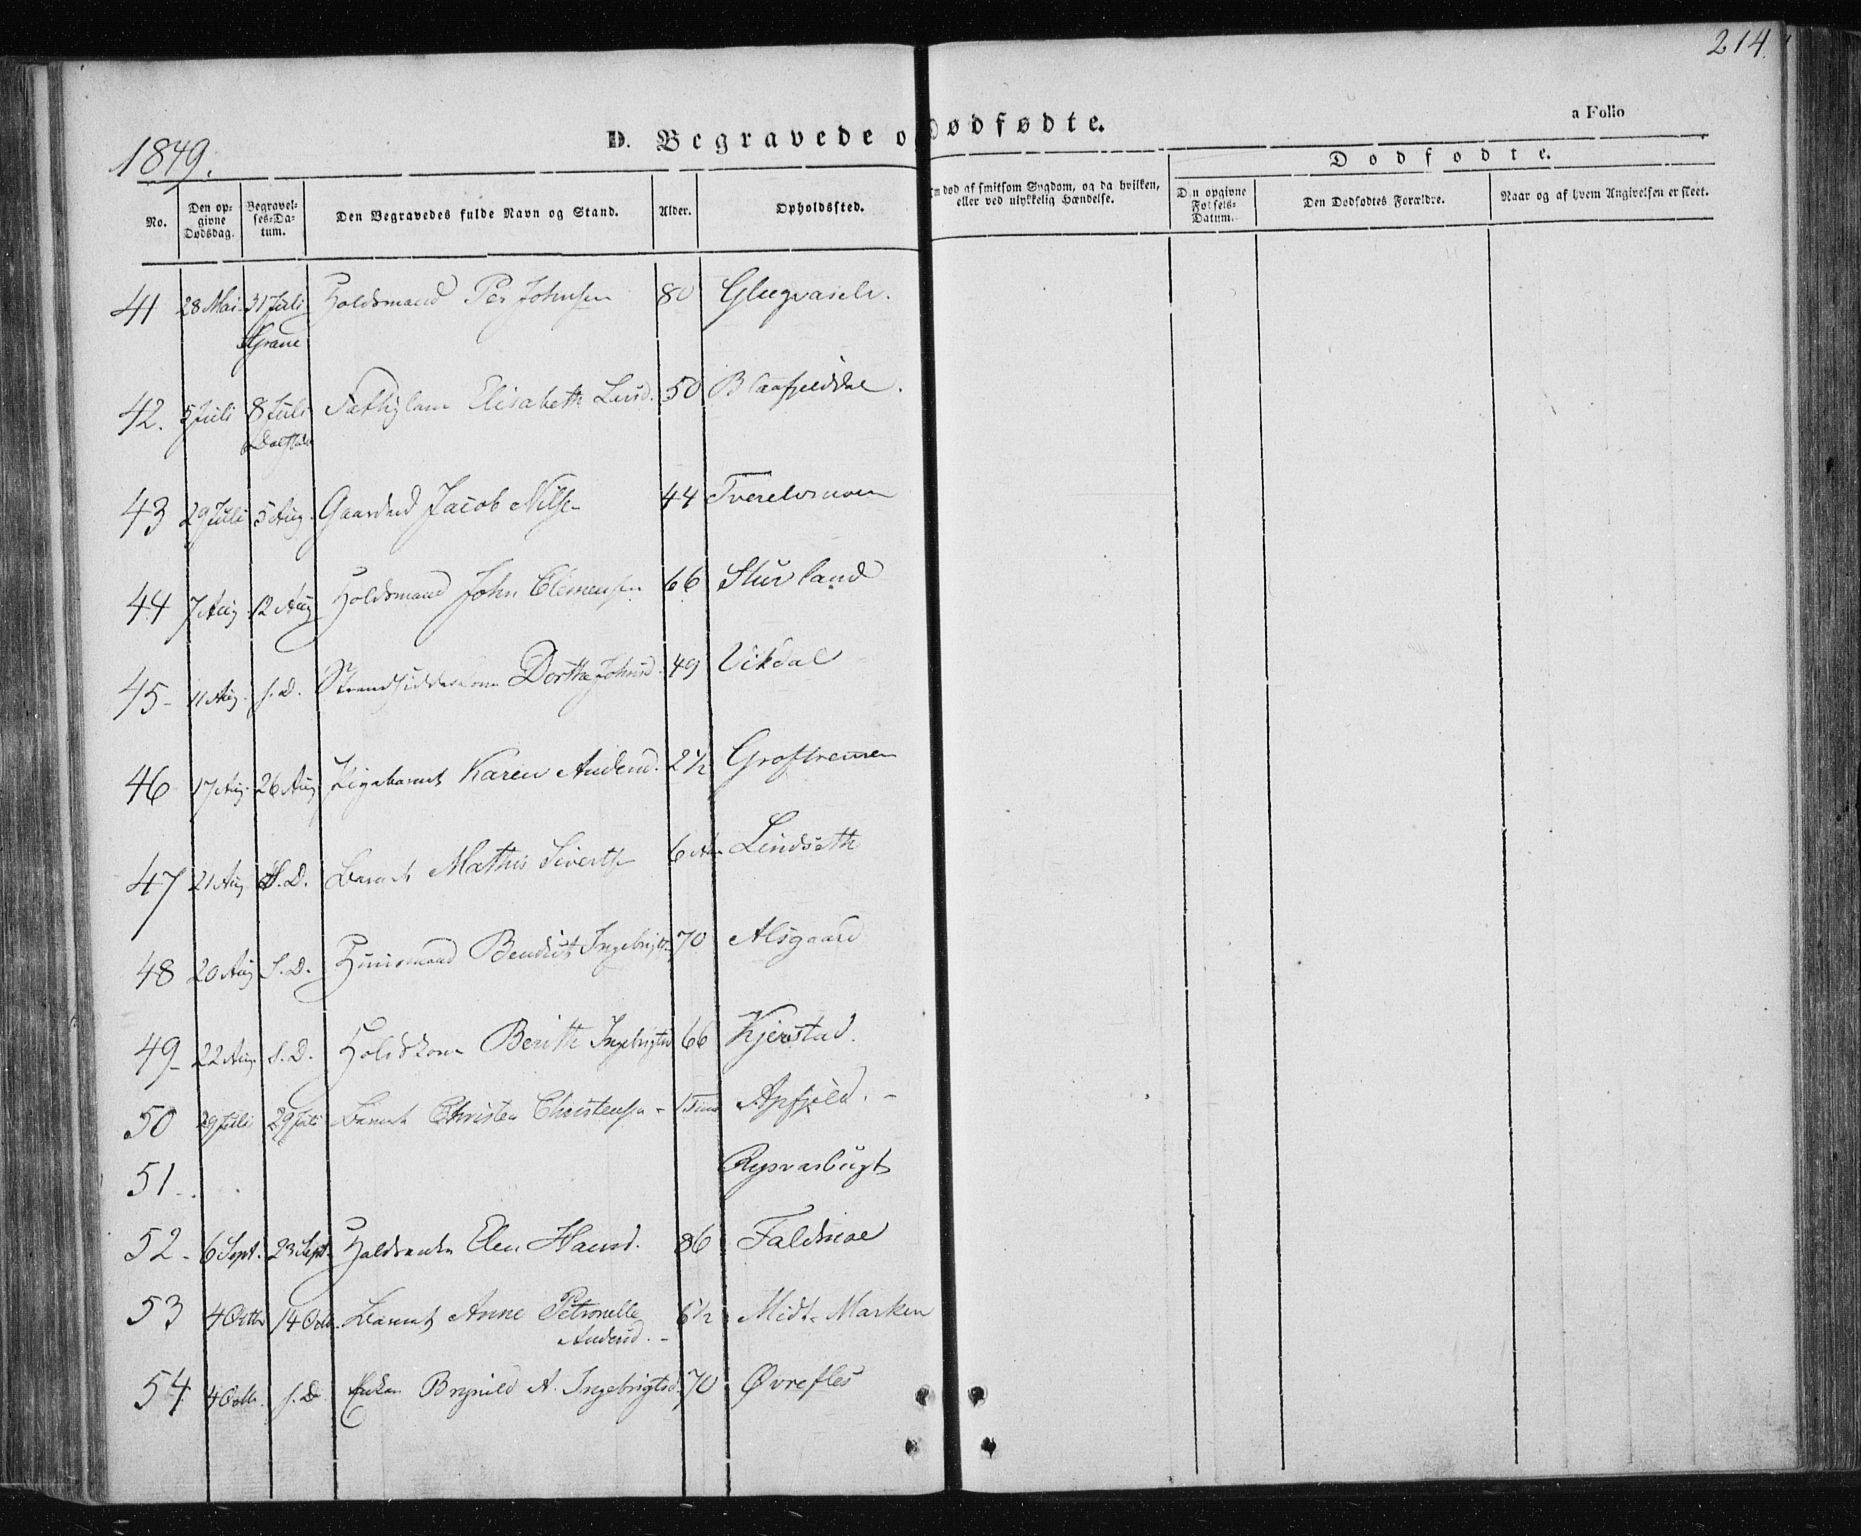 214.
1849.
D. Begravede o dødfødte.
a Folio
Dødfødte.
No.
Den opgivne Dødsdag.
Begravelses-Datum.
Den Begravedes fulde Navn og Stand.
Alder.
Opholdssted.
død af smitsom Sygdom, og da hvilken, eller ved ulykkelig Hændelse.
Den opgivne Fødsels-Datum.
Den Dødfødtes Forældre.
Naar og af hvem Angivelsen er skeet.
41 28 Mai 31 Juli Grane Holdsmand Per Johnsen 80
42. 5 Juli 8 Juli Elisabeth Larsd. 50 Blaafjelddal.
43 29 Juli 5 Aug. Gaardmd Jacob Nilsen 44 Tverelvmoen
44 7 Aug 12 Aug Holdsmand John Clemensen 66 Sturland
45 11 Aug. s.D. Strandsidderkone Dorthe Johnsd. 49 Vikdal
46 17 Aug. 26 Aug Pigebarnet Karen Andersd. 2½
47 21 Aug. S.D. Barnet Mathis Sivertsen 6 Lindseth
48 20 Aug S.D. Huusmand Bendict Ingebrigts. 70 Alsgaard
49 22 Aug. S.D. Holdskone Berith Ingebrigtsd 66 Kjerstad.
50 29 Juli 29 Juli Barnet Christen Christensen 1 Time Apfjeld.
51
52 6 Sept. 23 Sept. Holdsenke Elen Hansd. 86 Faldmoe
53 4 Octbr 14 Octb. Barnet Anne Petronelle Andersd. 6½ Midt-Marken
54 4 Octb. s.D Enken Brynild A. Ingebrigtsd. 70 Øvrefles